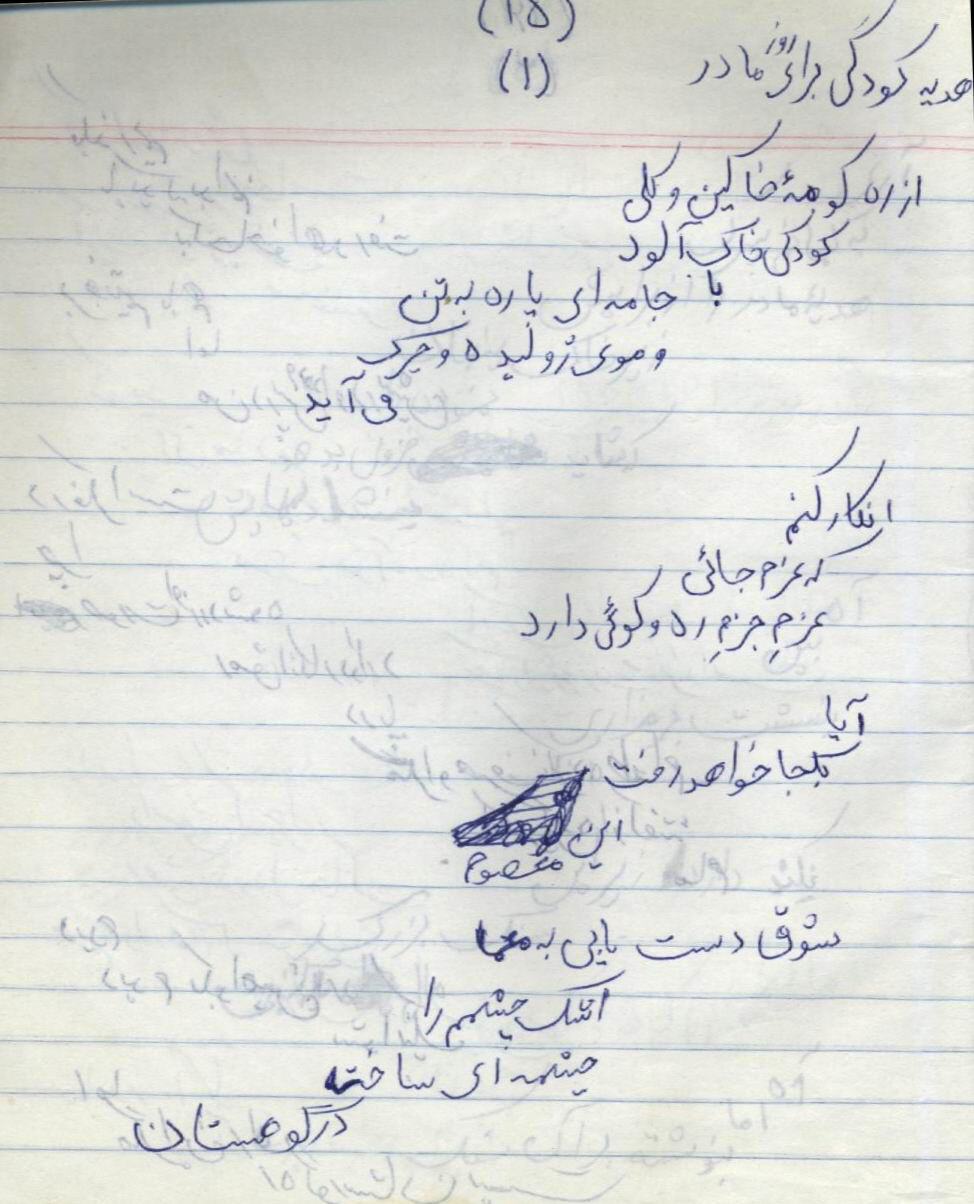 (۱۵)
(۱)
هدیه کودکی برای روز مادر
از ره کومهٔ خاکین و گلی
کودکی خاک آلود
با جامه ای پاره به تن
و موی ژولیده و چرک
می آید
انکار کنم
که عزم جائی
عزمِ جزمِ ره و کوئی دارد
آیا
بکجا خواهد رفت
این
معصوم
شوق دست یابی به معما
اشک چشمم را
چشمه ای ساخته
در کوهستان